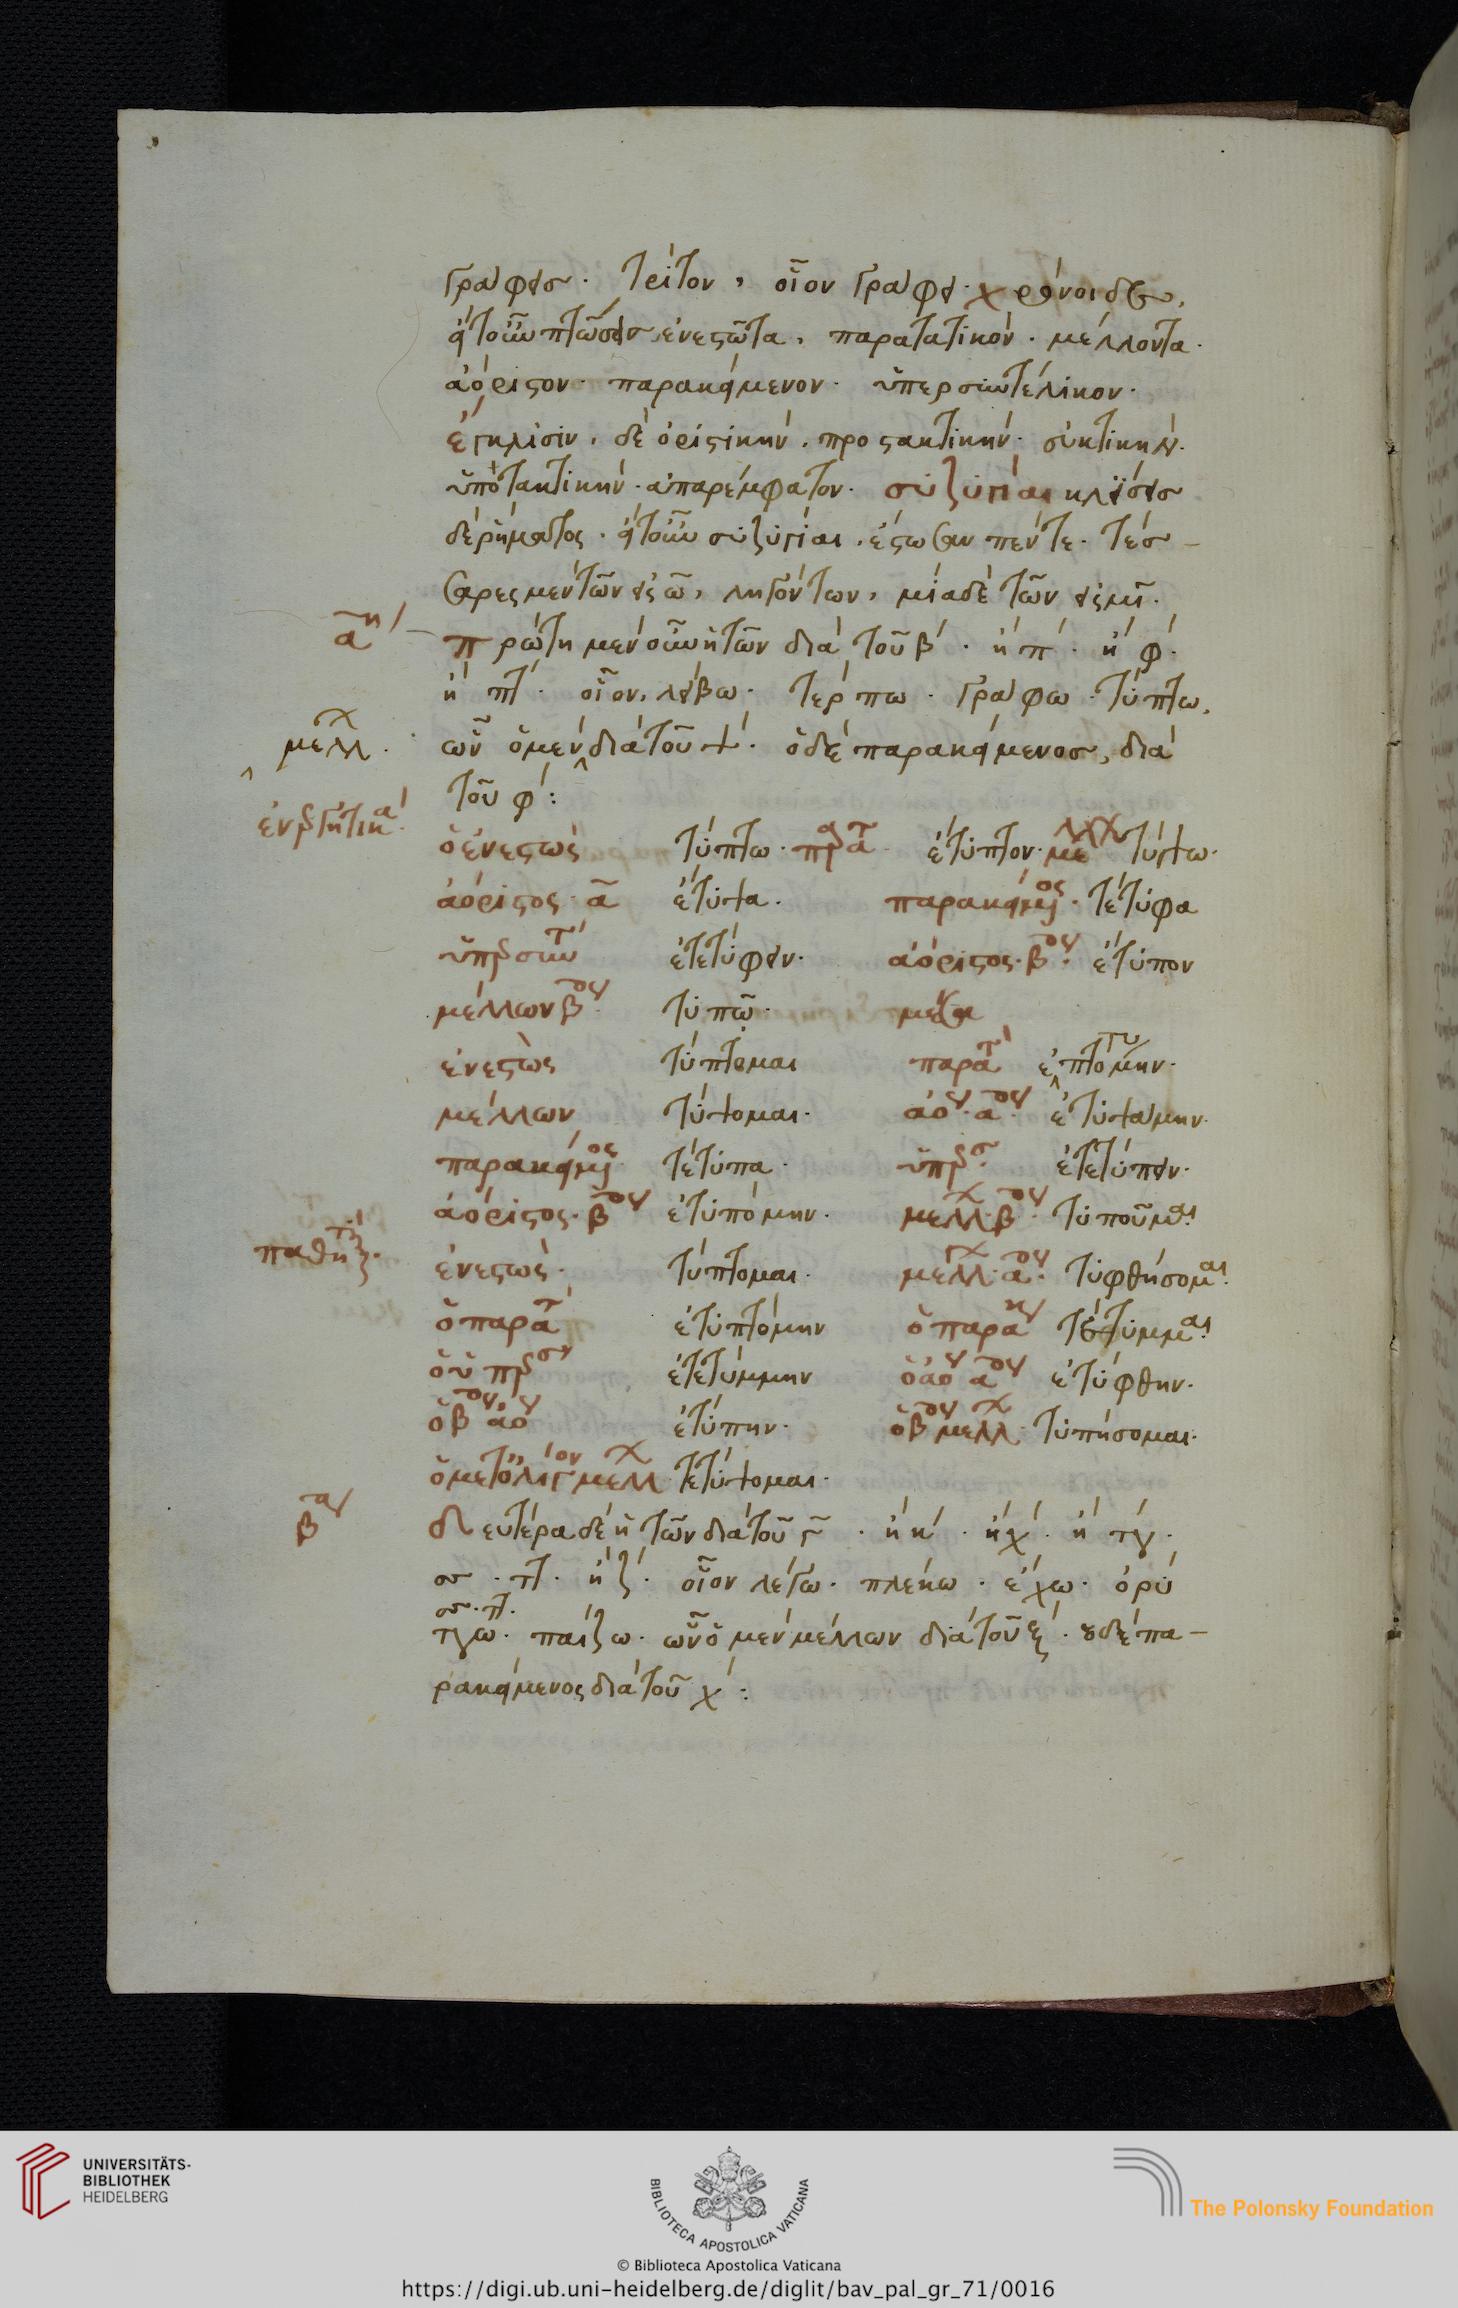 γράφεισ· τρίτον, οἷον γράφει· χρόνοι δὲ ἓξ,
ἤτοιουν πτώσεισ ἐνεςῶτα, παρατατικόν· μέλλοντα·
ἀόριςον· παρακείμενον· ὑπερσυντέλικον·
ἔγκλισιν, δὲ ὁριςικήν, προςακτικήν· εὐκτικήν·
ὑποτακτικήν· ἀπαρέμφατον· συζυγίαι κλίσεισ
δὲ ῥήματος· ἤτοιουν συζυγίαι, ἔςωσαν πέντε· τέσ-
σαρες μὲν τῶν εἰς ω̃, ληγόντων, μία δὲ τῶν εἰς μῖ·
α̃η πρώτη μὲν οὖν ἡ τῶν διὰ τοῦ β· ἢ π· ἢ φ·
ἢ πτ· οἷον, λείβω· τέρπω· γράφω· τύπτω,
μελλ· ὧν ὁ μὲν διὰ τοῦ ψ· ὁ δὲ παρακείμενοσ, διὰ
τοῦ φ:
ἐνεργητικά·
ὁ ἐνεςὼς τύπτω· παρατ ἔτυπτον· μελλ τύψω·
ἀόριςος· α̃ ἔτυψα· παρακείμενος· τέτυφα
ὑπερσυντ ἐτετύφειν· ἀόριςος· βου· ἔτυπον
μέλλων βου· τυπῶ· μέσα
ἐνεςὼς τύπτομαι παρατ ἐτυπτόμην·
μέλλων τύψομαι· ἀό· αου· ἐτυψάμην·
παρακείμενος τέτυπα· ὑπερσ· ἐτετύπειν·
ἀόριςος· βου ἐτυπόμην· μελλ· βου· τυποῦμαι·
παθητι
ἐνεςὼς· τύπτομαι· μελλ· αου· τυφθήσομαι·
ὁ παρατ ἐτυπτόμην ὁ παρακ τέτυμμαι·
ὁ ὑπερσυ ἐτετύμμην ὁ ἀό αου ἐτύφθην·
ὁ βου ἀό ἐτύπην· ὁ βου μελλ· τυπήσομαι·
ὁ μετολίγον μελλ· τετύψομαι·
βα δευτέρα δὲ ἡ τῶν διὰ τοῦ γ· ἢ κ· ἢ χ· ἢ σκ·
σσ· ττ· ἢ ζ· οἷον λέγω· πλέκω· ἔχω· ὀρύ
σσ· ττ·
σκω· παίζω· ὧν ὁ μὲν μέλλων διὰ τοῦ ξ· ὁ δὲ πα-
ρακείμενος διὰ τοῦ χ:
UNIVERSITÄTS-
BIBLIOTHEK
HEIDELBERG
BIBLIOTECA APOSTOLICA VATICANA
The Polonsky Foundation
© Biblioteca Apostolica Vaticana
https://digi.ub.uni-heidelberg.de/diglit/bav_pal_gr_71/0016